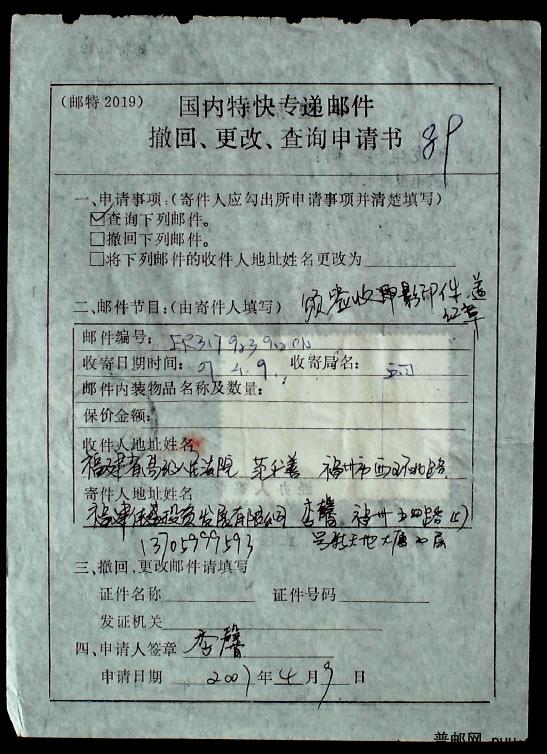 (邮特2019)
国内特快专递邮件
撤回、更改、查询申请书
89
一、申请事项:(寄件人应勾出所申请事项并清楚填写)
☑查询下列邮件。
□撤回下列邮件。
□将下列邮件的收件人地址姓名更改为
二、邮件节目:(由寄件人填写)
须签收联影印件,盖
红章
邮件编号:
收寄日期时间: 07.4.9. 收寄局名:
邮件内装物品名称及数量:
保价金额:
收件人地址姓名
福建省高级人民法院 福州市西环北路
寄件人地址姓名
投资发展有限公司 李馨 福州五四路
13705999593 大厦
三、撤回、更改邮件请填写
证件名称 证件号码
发证机关
四、申请人签章 李馨
申请日期 2007年4月9日
普邮网